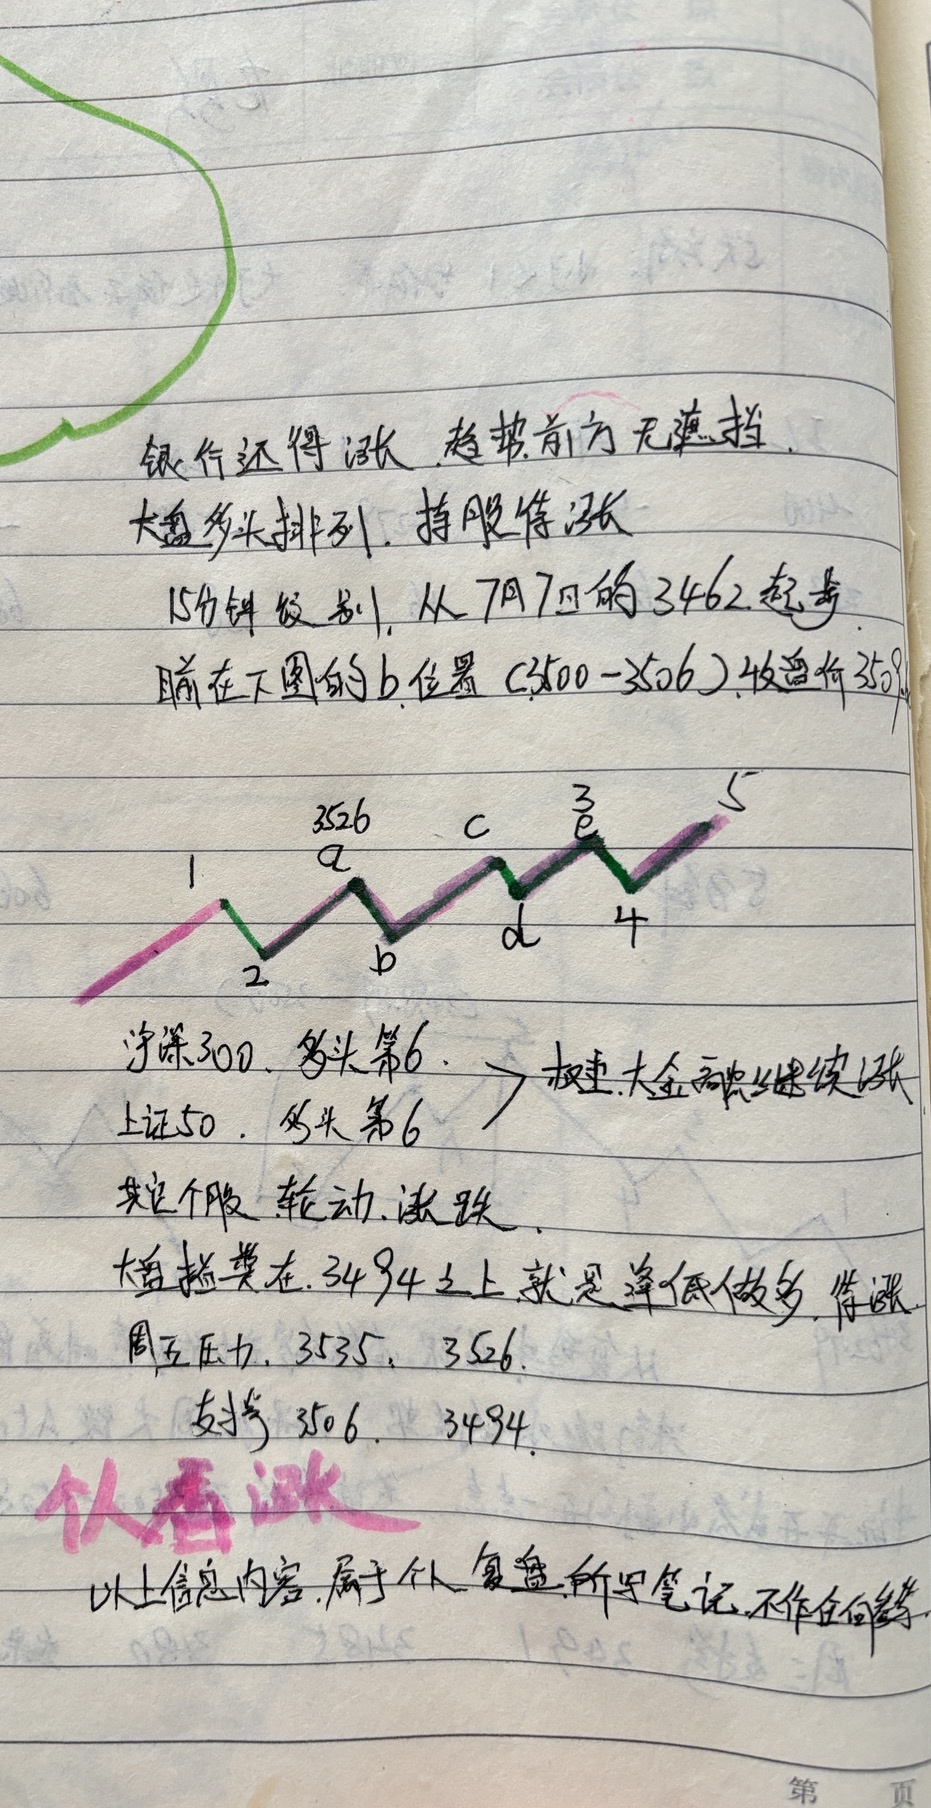 银行还得涨.趋势前方无遮挡.
大盘多头排列.持股待涨
15分钟级别.从7月7日的3462起步.
目前在下图的b位置(3500-3506).收盘价3509.
1 2 3526 a b c d 3 e 4 5
沪深300.多头第6.
上证50.多头第6
权重.大金融继续涨
其它个股.轮动.涨跌.
大盘指数在.3494之上.就是逢低做多.待涨.
周五压力.3535. 3526.
支撑 3506. 3494.
个人看涨
以上信息内容.属于个人复盘.所写笔记.不作任何
第 页